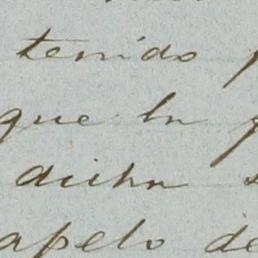 tenido
que la
dicha
apelo de